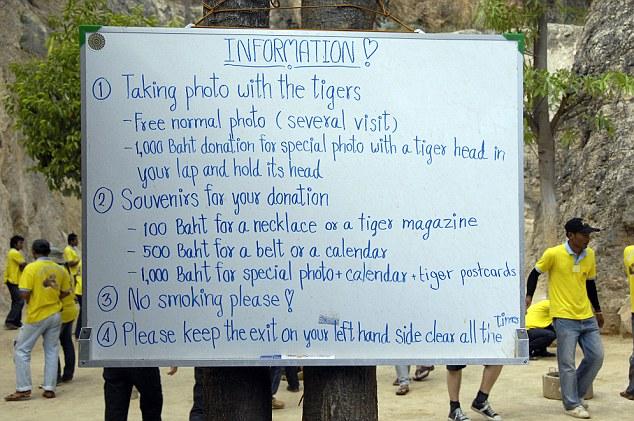 INFORMATION ! ♡
① Taking photo with the tigers
- Free normal photo ( several visit )
- 1,000 Baht donation for special photo with a tiger head in
your lap and hold its head
② Souvenirs for your donation
- 100 Baht for a necklace or a tiger magazine
- 500 Baht for a belt or a calendar
- 1,000 Baht for special photo + calendar + tiger postcards
③ No smoking please !
④ Please keep the exit on your left hand side clear all the Times